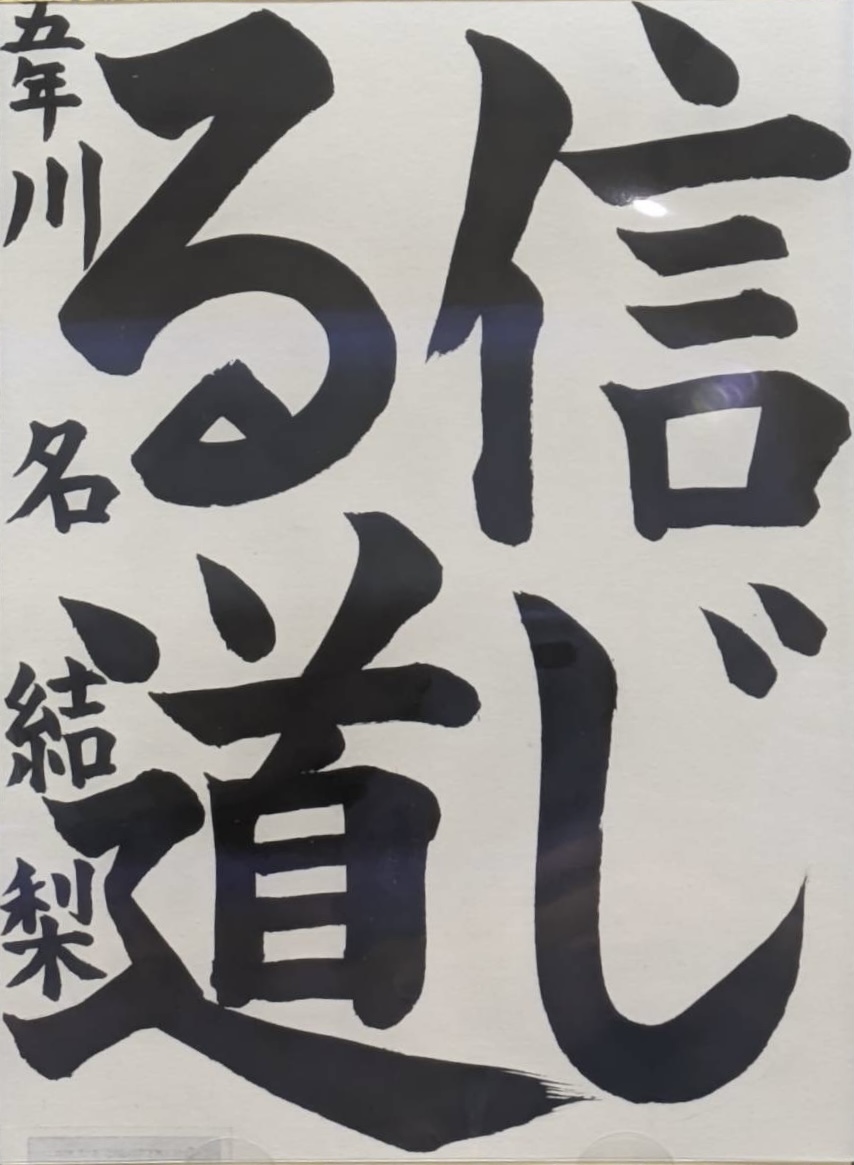 信じ
る道
五年 川名結梨